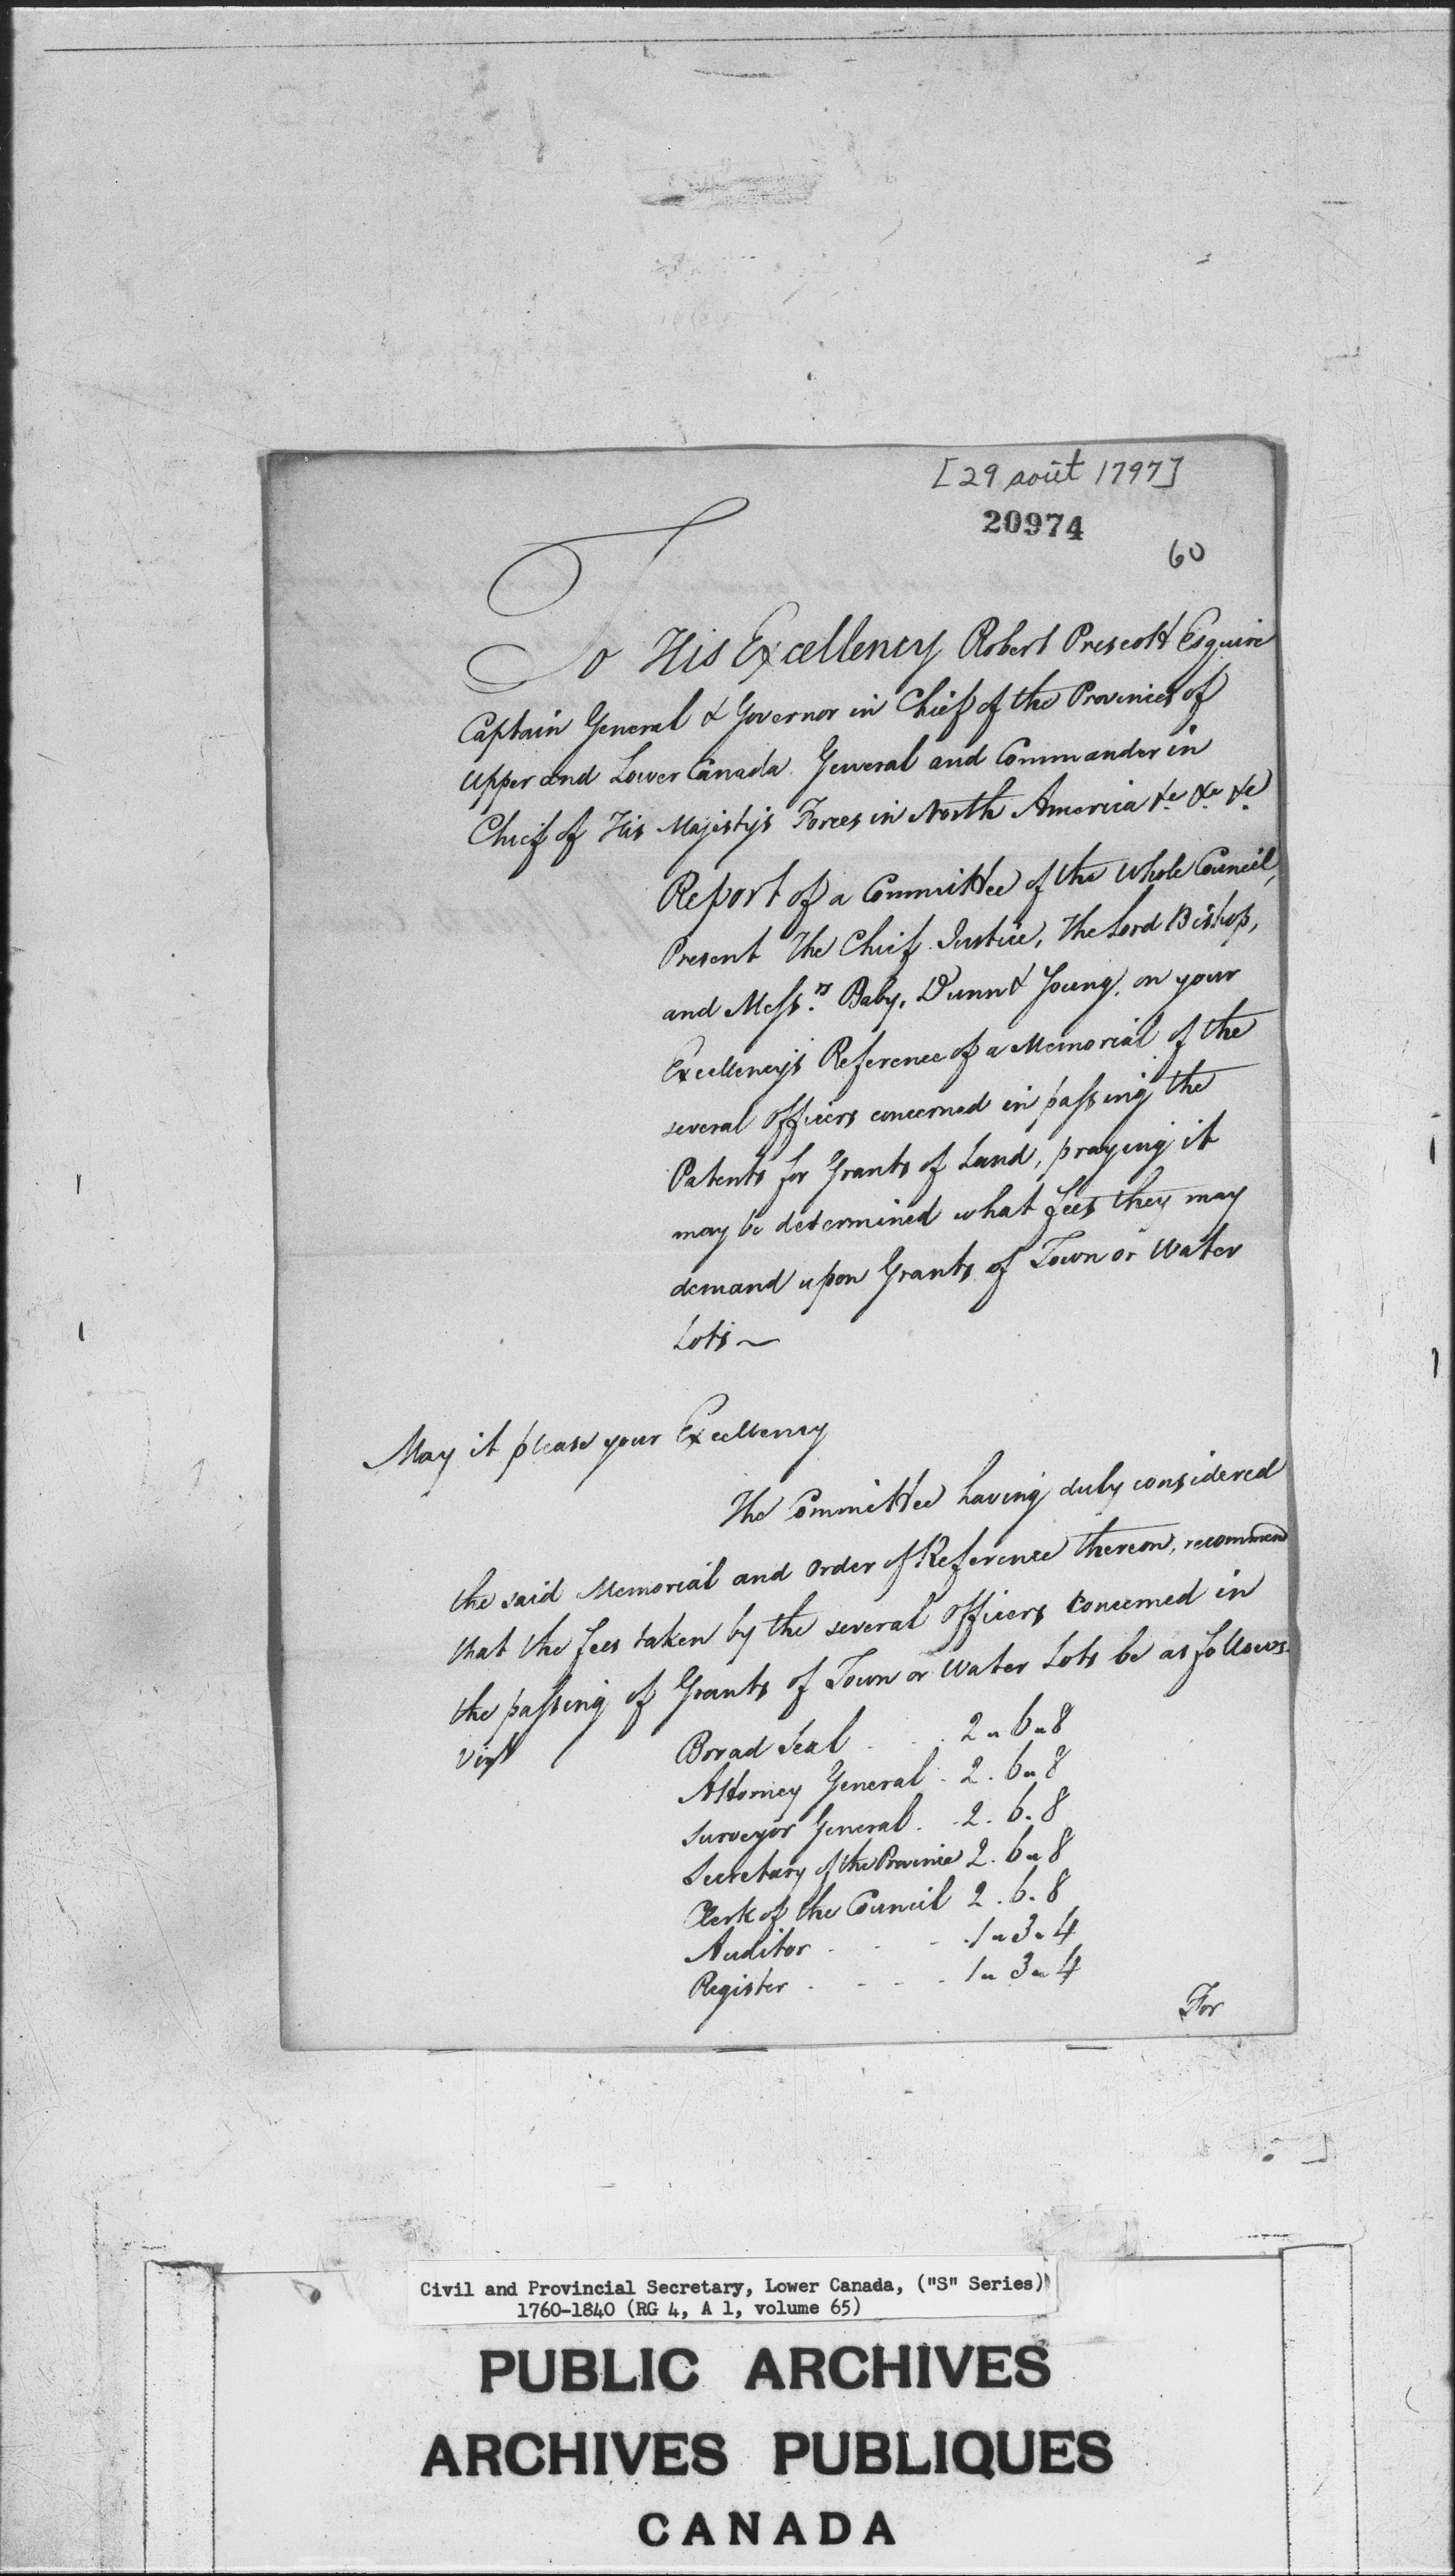 [29 août 1797]
20974
60
To His Excellency Robert Prescott Esquire
Captain General & Governor in Chief of the Provinces of
Upper and Lower Canada. General and Commander in
Chief of His Majesty's Forces in North America &c &c &c
Report of a Committee of the whole Council,
Present The Chief Justice, The Lord Bishop,
and Messrs. Baby, Dunn & Young, on your
Excellency's Reference of a Memorial of the
several Officers concerned in passing the
Patents for Grants of Land, praying it
may be determined what fees they may
demand upon Grants of Town or Water
Lots ~
May it please your Excellency
The Committee having duly considered
the said Memorial and Order of Reference thereon, recommend
that the fees taken by the several Officers concerned in
the passing of Grants of Town or Water Lots be as follows.
Vizt
Broad Seal . . . 2 " 6 " 8
Attorney General . 2 . 6 " 8
Surveyor General . . 2 . 6 . 8
Secretary of the Province 2 . 6 " 8
Clerk of the Council 2 . 6 . 8
Auditor . . . . 1 " 3 " 4
Register . . . . 1 " 3 " 4
For
Civil and Provincial Secretary, Lower Canada, ("S" Series)
1760-1840 (RG 4, A 1, volume 65)
PUBLIC ARCHIVES
ARCHIVES PUBLIQUES
CANADA